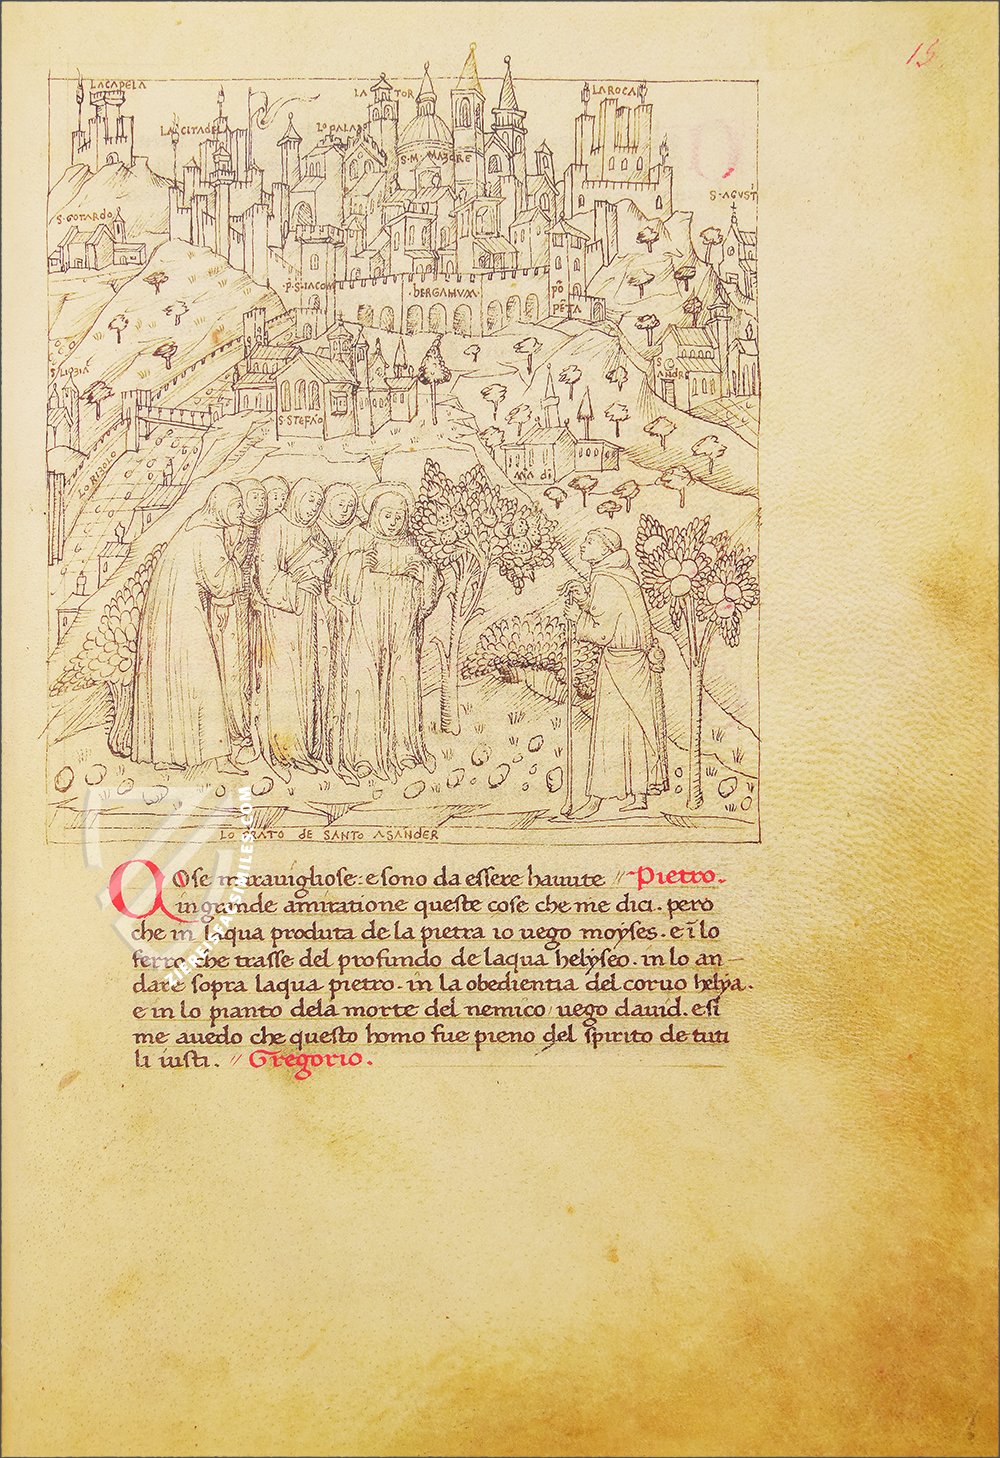 15
LACAPELA
LA CITADEL
LO PALADO
LA TOR
S·M·MAJORE
LAROCA
S·AGUSTI
S·GOTARDO
·P·S·IACOM
·BERGAMUM·
PO
PETA
S
ANDRE
S·STEFAO
MIA DI
LO RATO DE SANTO ASANDER
Qose miravigliose: e sono da essere havute // Pietro.
in grande amiratione queste cose che me dici. pero
che in laqua produta de la pietra io vego moyses. e i lo
ferro che trasse del profundo de laqua helyseo. in lo an—
dare sopra laqua pietro. in la obedientia del corvo helya.
e in lo pianto dela morte del nemico vego david. e si
me avedo che questo homo fue pieno del spirito de tuti
li iusti. // Gregorio.
ZIEREISFACSIMILES.COM